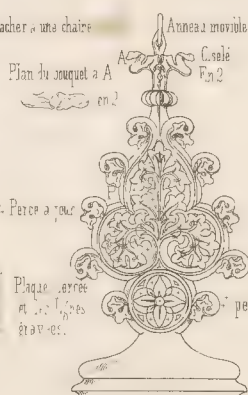 acher a une chaire
Anneau movible
A
Ciselé
En 2
Plan du bouquet a A
en 2
Percé a jour
Plaque percée
et
gravées.
pe